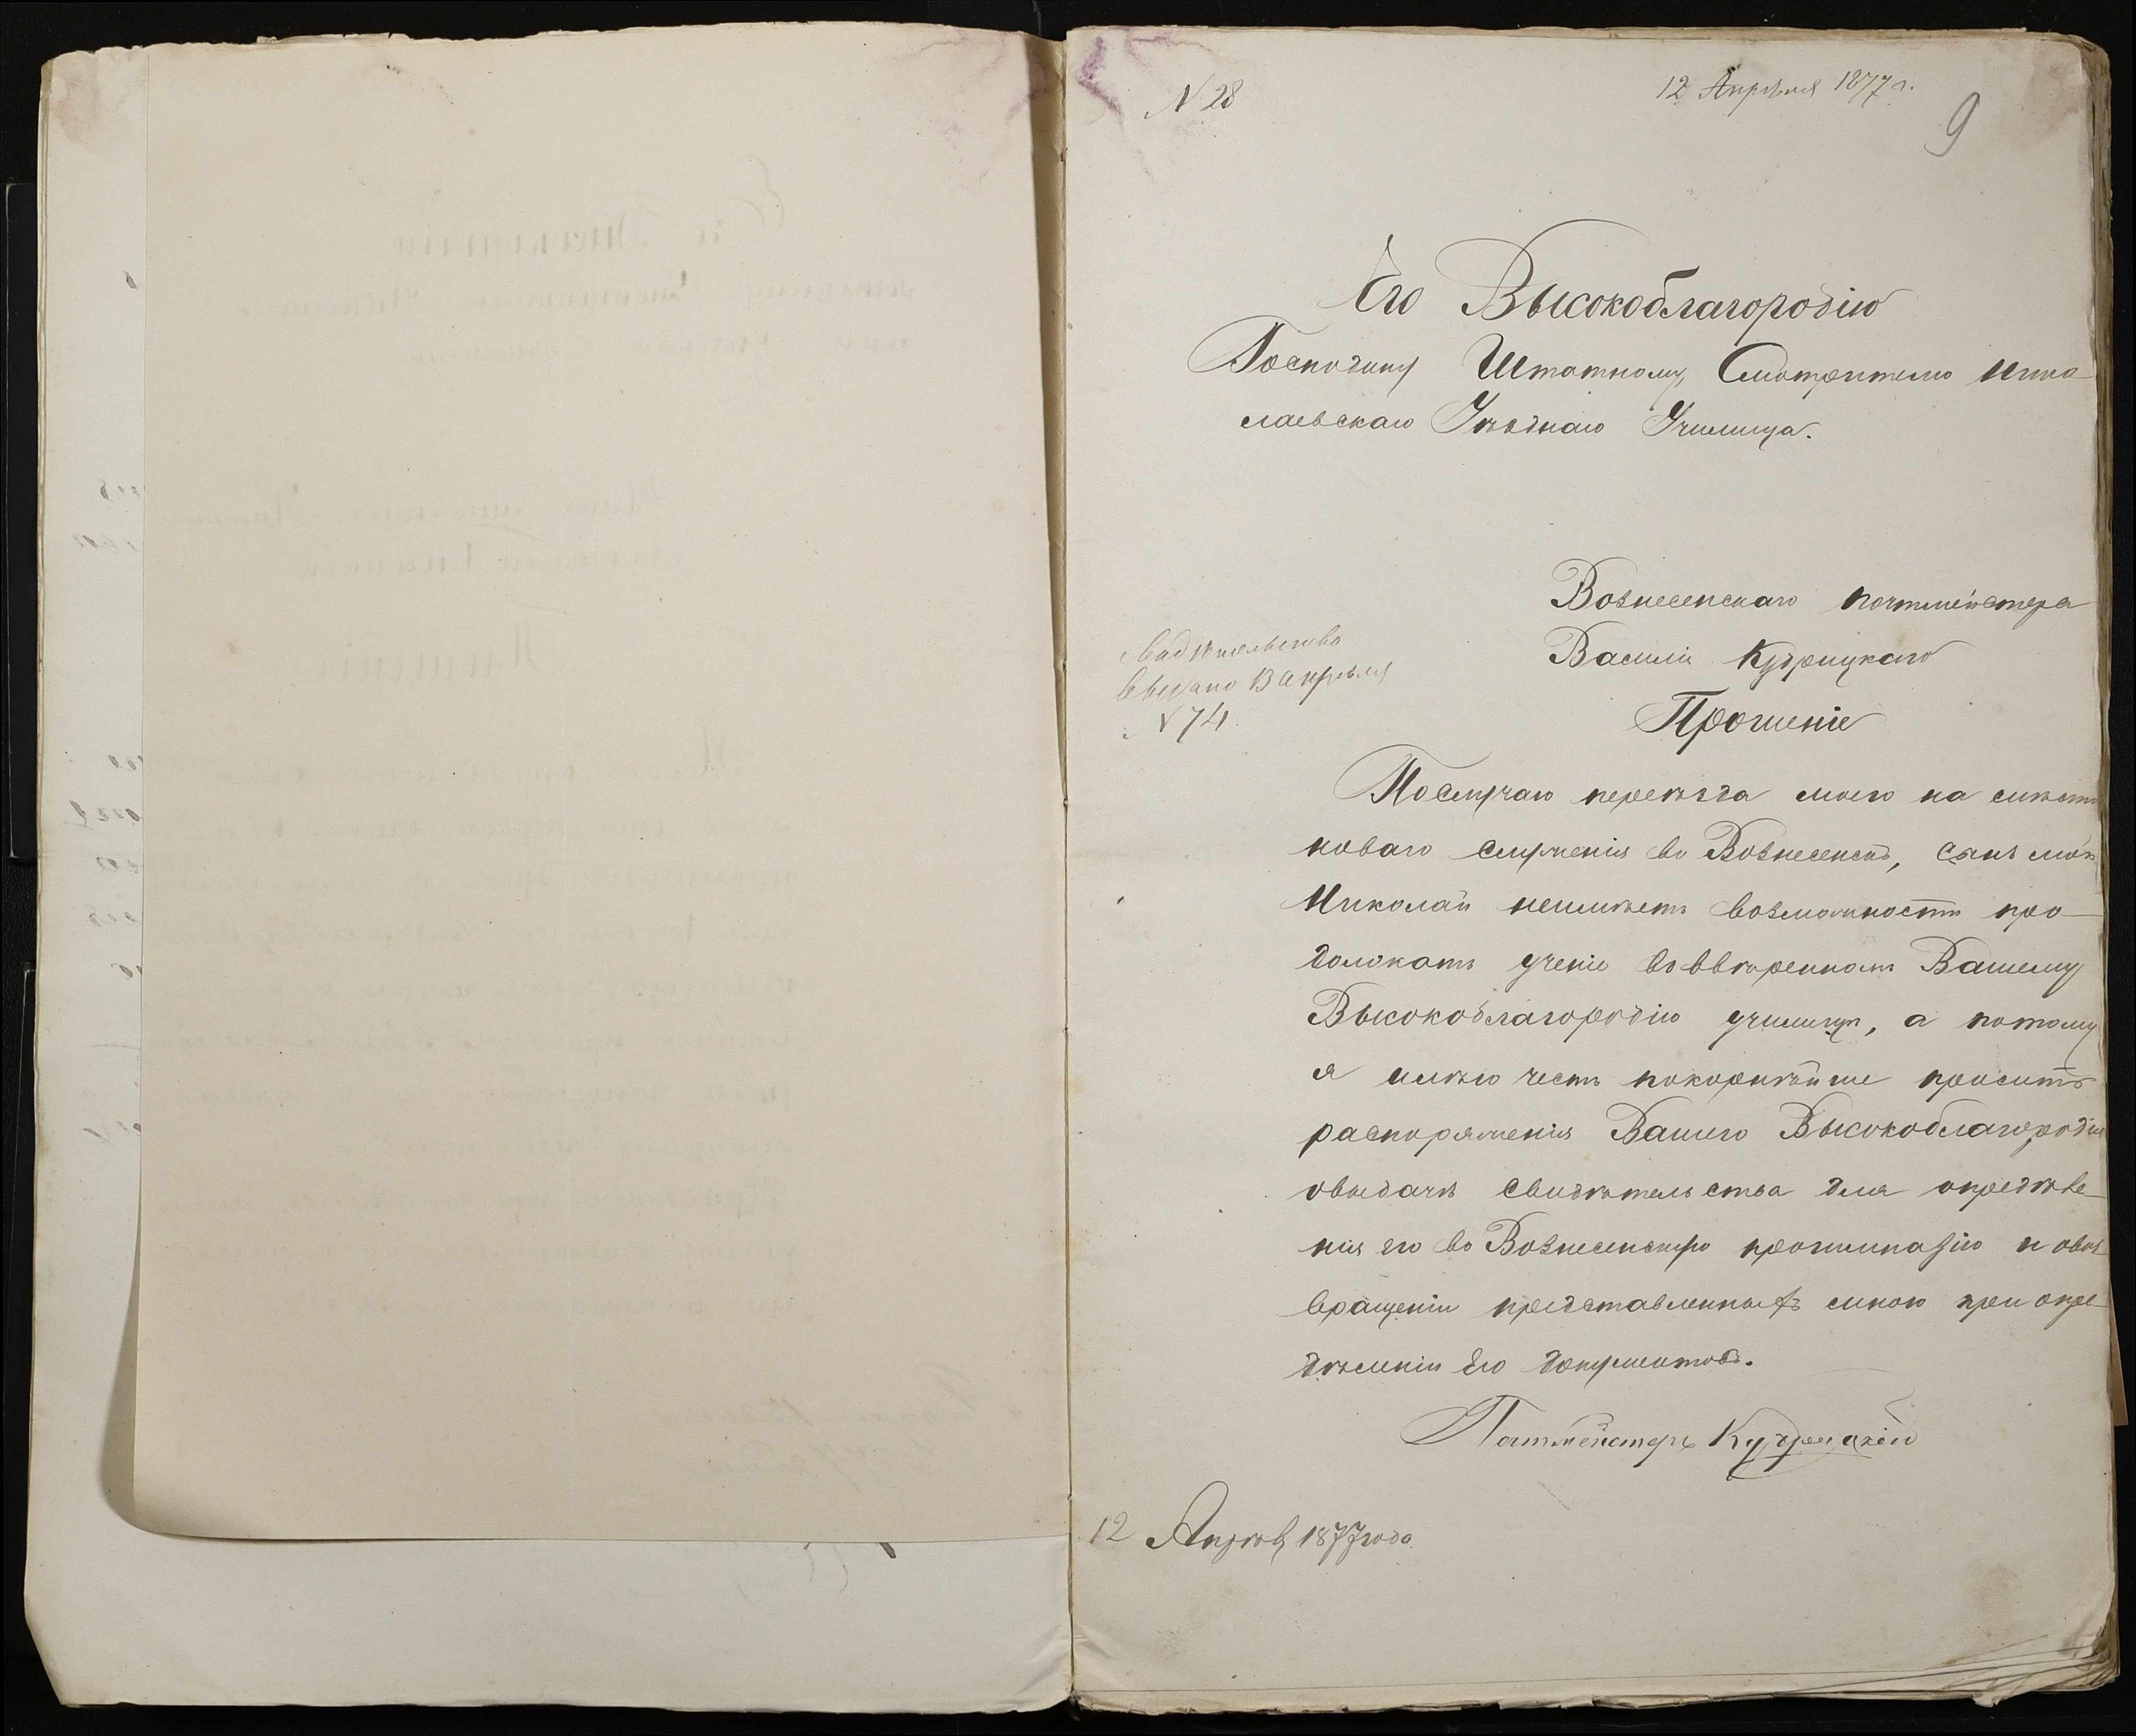 N 28
12 Апрѣля 1877 г.
9
Его Высокоблагородію
Господину Штатному Смотрителю Нико-
лаевскаго Уѣзднаго Училища.
Вознесенскаго почтмейстера
Василія Кудрицкаго
Прошеніе
Свидѣтельство
выдано 13 апрѣля
N 74
По случаю переѣзда моего на мѣсто
новаго служенія въ Вознесенскъ, сынъ мой
Николай неимѣетъ возможности про-
должать ученіе въ ввѣренномъ Вашему
Высокоблагородію училищѣ, а потому
я имѣю честь покорнѣйше просить
распоряженія Вашего Высокоблагородія
овыдачѣ свидѣтельства для опредѣле-
нія его въ Вознесенскую прогимназію и овоз-
вращеніи представленныхъ мною при опре-
дѣленіи его документовъ.
Почтмейстеръ Кудрицкій
12 Апрѣля 1877 года